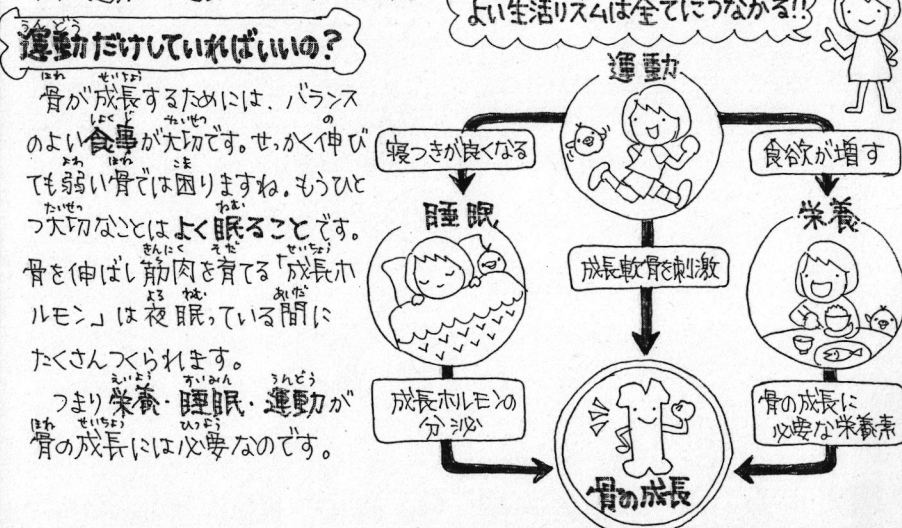 よい生活リズムは全てにつながる!!
運動だけしていればいいの?
骨が成長するためには、バランス
のよい食事が大切です。せっかく伸び
ても弱い骨では困りますね。もうひと
つ大切なことはよく眠ることです。
骨を伸ばし筋肉を育てる「成長ホ
ルモン」は夜眠っている間に
たくさんつくられます。
つまり栄養・睡眠・運動が
骨の成長には必要なのです。
運動
寝つきが良くなる
食欲が増す
睡眠
成長軟骨を刺激
栄養
成長ホルモンの
分泌
骨の成長に
必要な栄養素
骨の成長